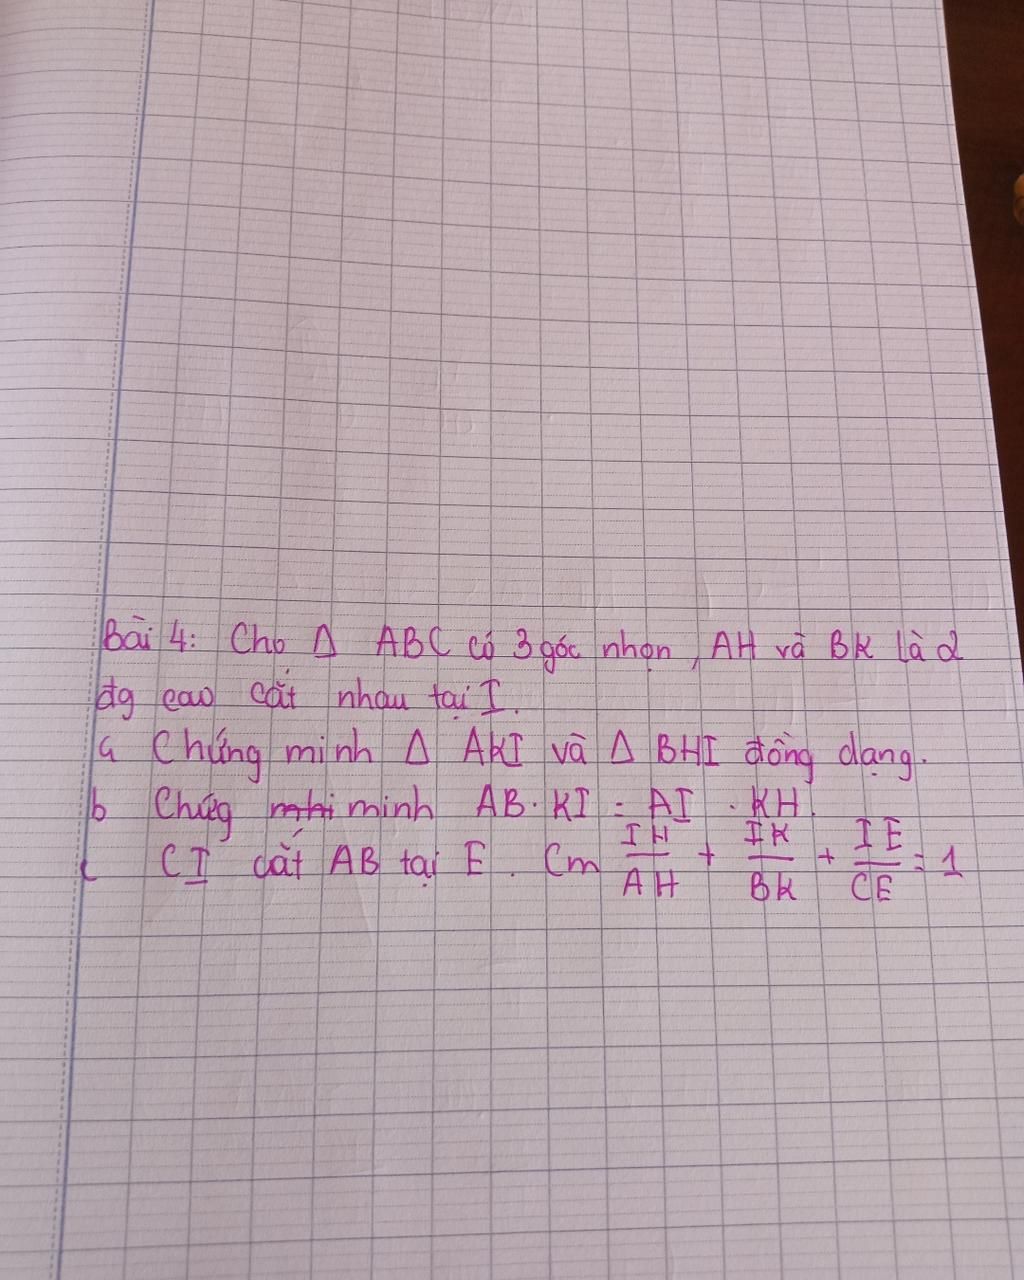 Bài 4: Cho Δ ABC có 3 góc nhọn, AH và BK là 2
đg cao cắt nhau tại I.
a Chứng minh Δ AKI và Δ BHI đồng dạng.
b Chứg minh AB. KI = AI . KH.
c CI cắt AB tại E. Cm IH/AH + IK/BK + IE/CE = 1